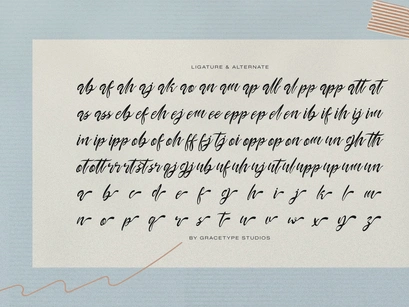 LIGATURE & ALTERNATE
ab af ah aj ak ao an am ap all al pp app att at
as ass eb ef eh ej em ee epp ep el en ib if ih ij im
in ip ipp ob of oh ff fj tj oi opp op on om un gh th
ot ott rr rt st sr qj gj ub uf uh uj ut ul upp up um un
a b c d e f g h i j k l m
n o p q r s t u v w x y z
BY GRACETYPE STUDIOS